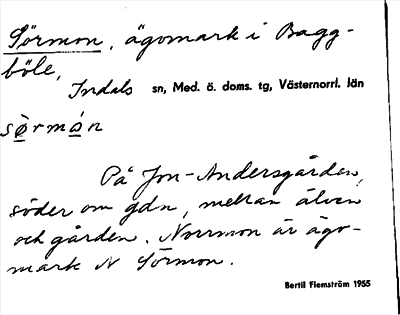 Sörmon, ägomark i Bagg-
böle,
Indals sn, Med. ö. doms. tg, Västernorrl. län
sö̀rmó̱n
På Jon-Andersgården,
söder om gdn, mellan älven
och gården. Norrmon är ägo-
mark N Sörmon.
Bertil Flemström 1955